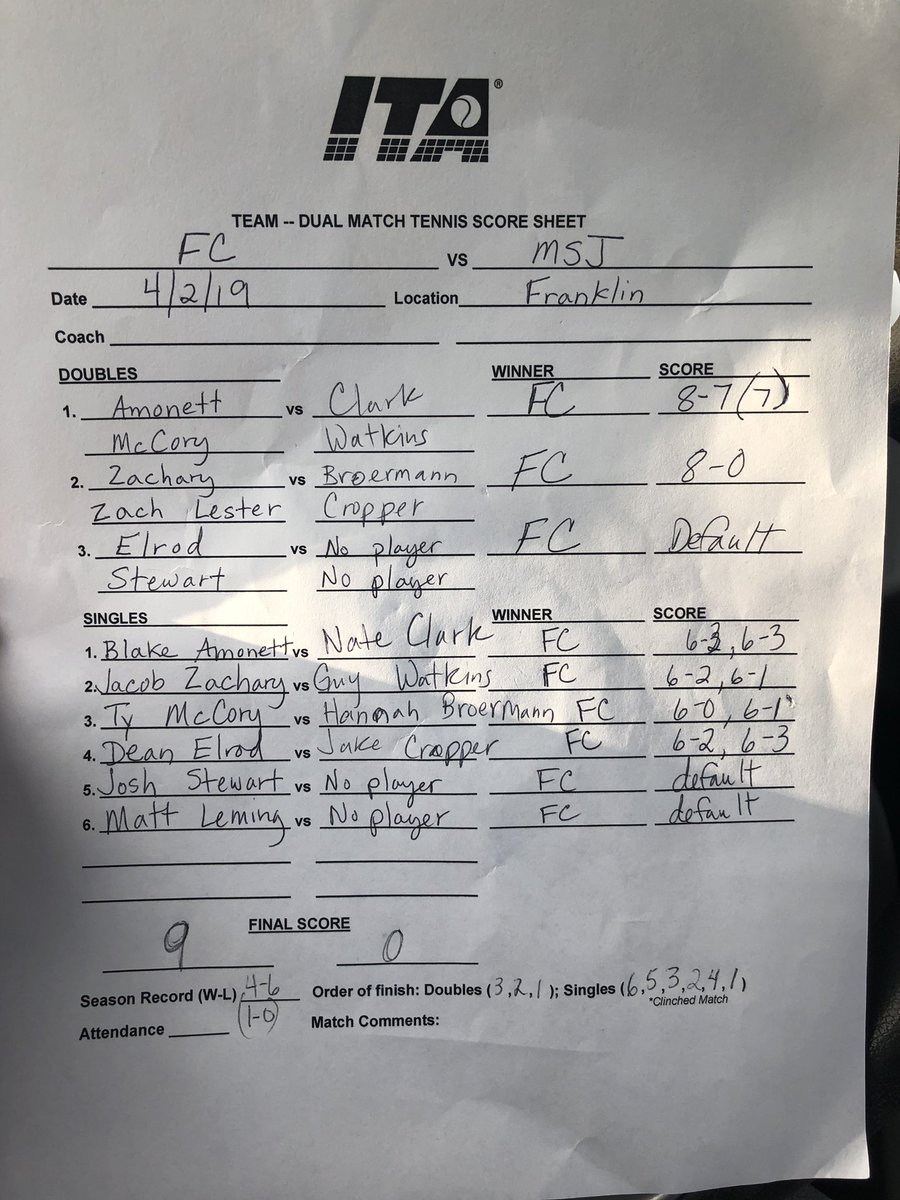 ITA®
TEAM -- DUAL MATCH TENNIS SCORE SHEET
FC VS MSJ
Date 4/2/19 Location Franklin
Coach
DOUBLES WINNER SCORE
1. Amonett vs Clark FC 8-7(7)
McCory Watkins
2. Zachary vs Broermann FC 8-0
Zach Lester Cropper
3. Elrod vs No player FC Default
Stewart No player
SINGLES WINNER SCORE
1. Blake Amonett vs Nate Clark FC 6-3, 6-3
2. Jacob Zachary vs Guy Watkins FC 6-2, 6-1
3. Ty McCory vs Hannah Broermann FC 6-0, 6-1
4. Dean Elrod vs Jake Cropper FC 6-2, 6-3
5. Josh Stewart vs No player FC default
6. Matt Leming vs No player FC default
FINAL SCORE
9 0
Season Record (W-L) 4-6 Order of finish: Doubles (3,2,1); Singles (6,5,3,2,4,1)
(1-0) *Clinched Match
Attendance Match Comments: